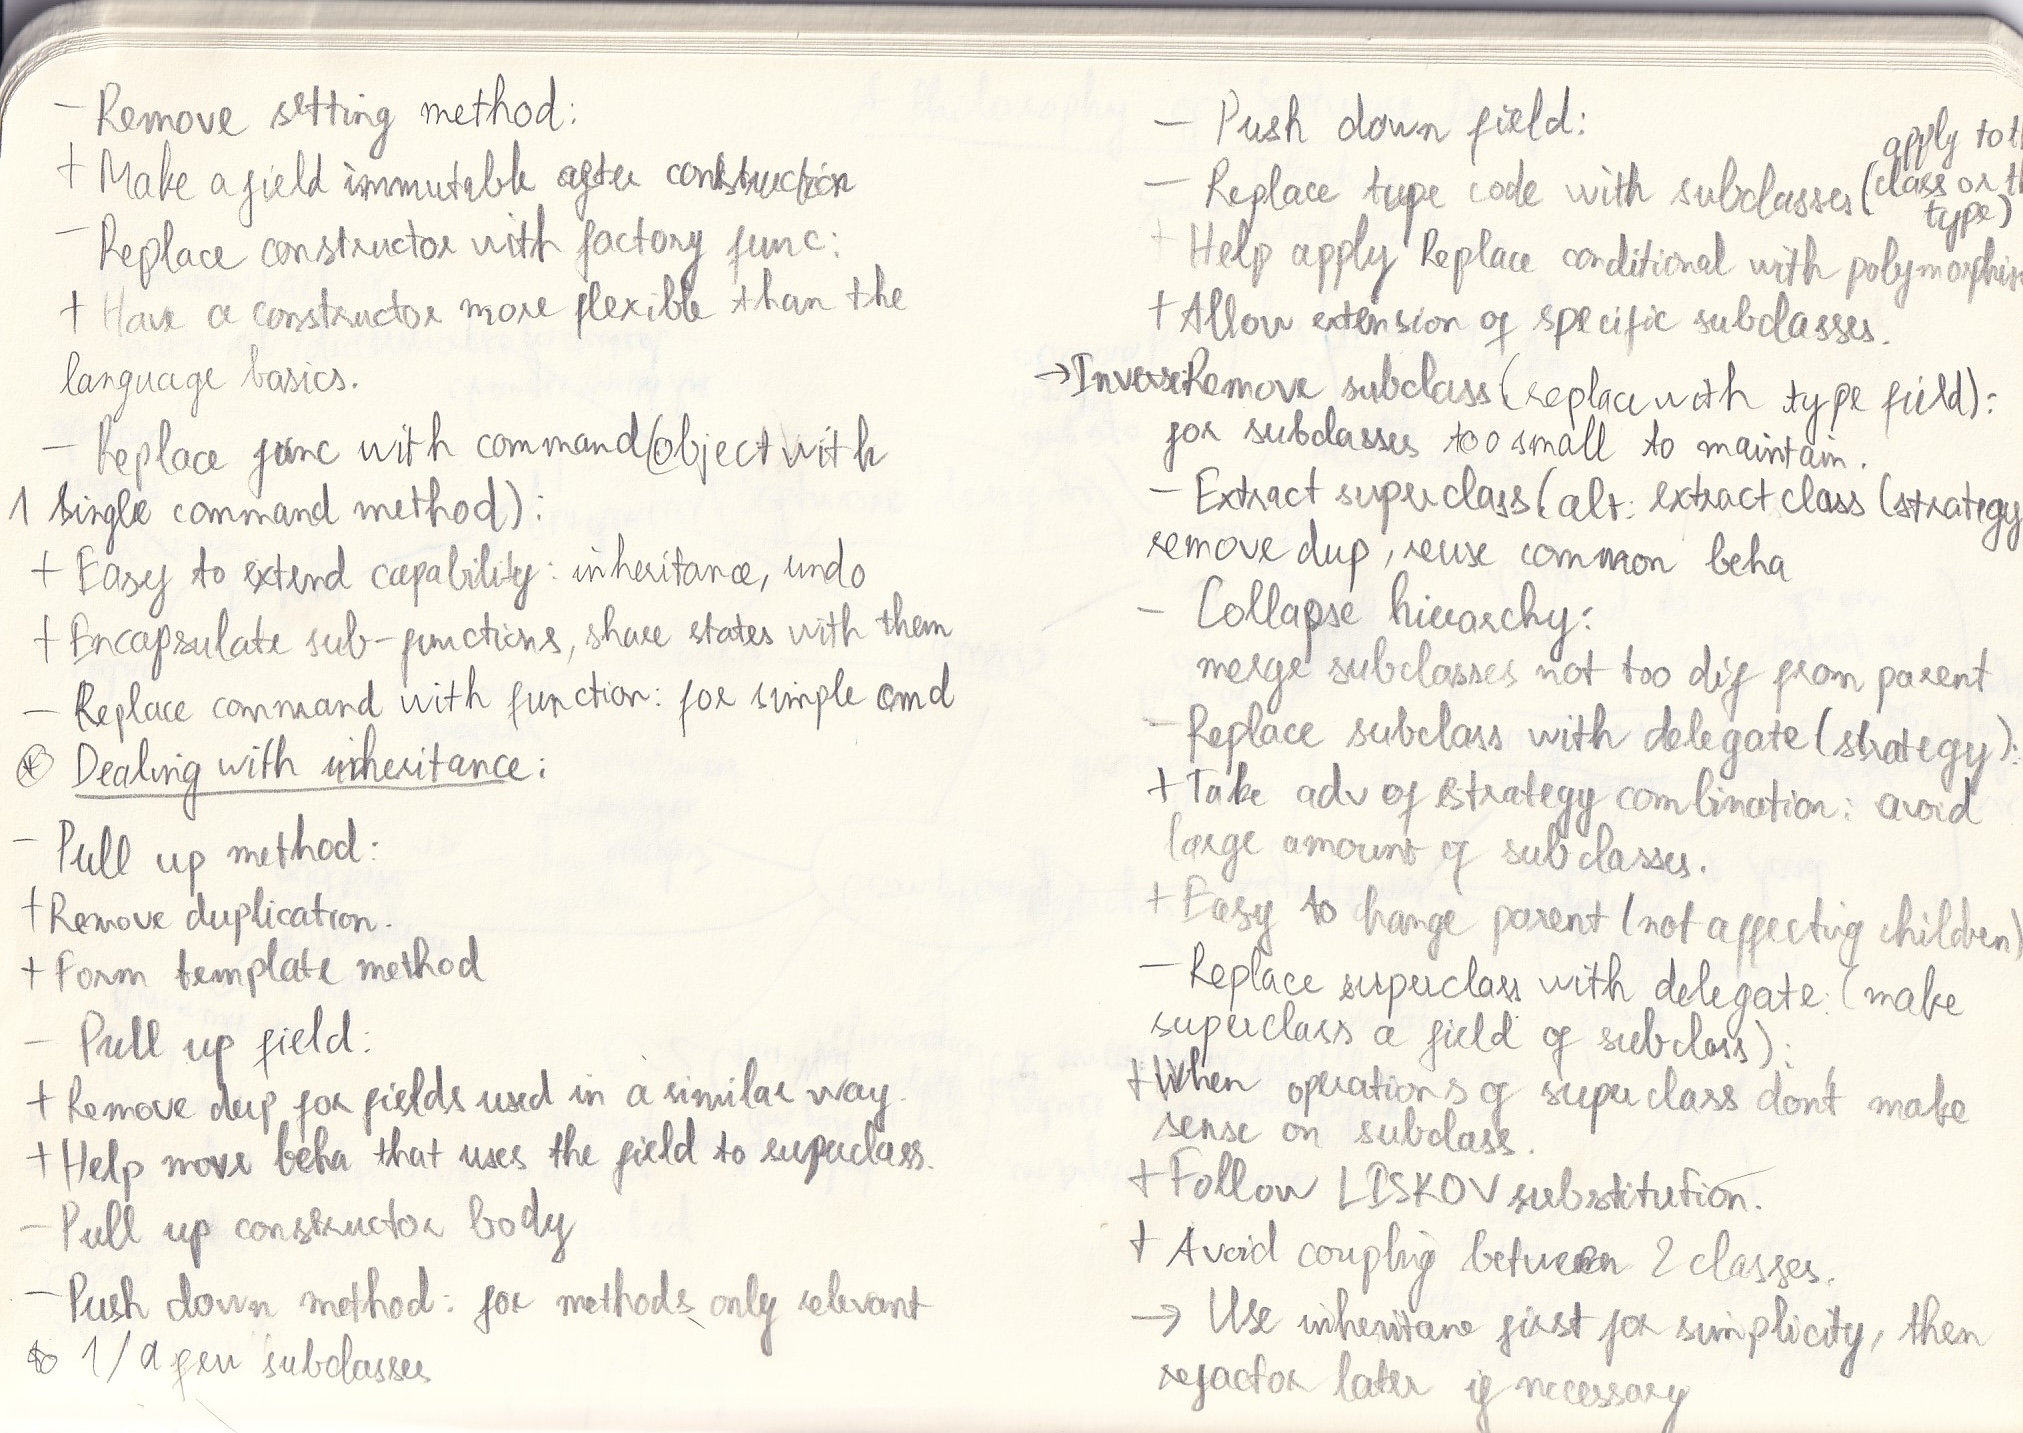 - Remove setting method:
+ Make a field immutable after construction
- Replace constructor with factory func:
+ Have a constructor more flexible than the
language basics.
- Replace func with command (object with
1 single command method):
+ Easy to extend capability: inheritance, undo
+ Encapsulate sub-functions, share states with them
- Replace command with function: for simple cmd
⊛ Dealing with inheritance:
- Pull up method:
+ Remove duplication.
+ Form template method
- Pull up field:
+ Remove dup for fields used in a similar way.
+ Help move beha that uses the field to superclass.
- Pull up constructor body
- Push down method: for methods only relevant
to 1/a few subclasses
- Push down field:
- Replace type code with subclasses (apply to
class or
type)
+ Help apply Replace conditional with
+ Allow extension of specific subclasses.
→ Inverse: Remove subclass (replace with type field):
for subclasses too small to maintain.
- Extract superclass (alt: extract class (strategy
remove dup, reuse common beha
- Collapse hierarchy:
merge subclasses not too dif from parent
- Replace subclass with delegate (strategy):
+ Take adv of strategy combination: avoid
large amount of subclasses.
+ Easy to change parent (not affecting children)
- Replace superclass with delegate: (make
superclass a field of subclass):
+ When operations of superclass don't make
sense on subclass.
+ Follow LISKOV substitution.
+ Avoid coupling between 2 classes.
→ Use inheritane first for simplicity, then
refactor later if necessary